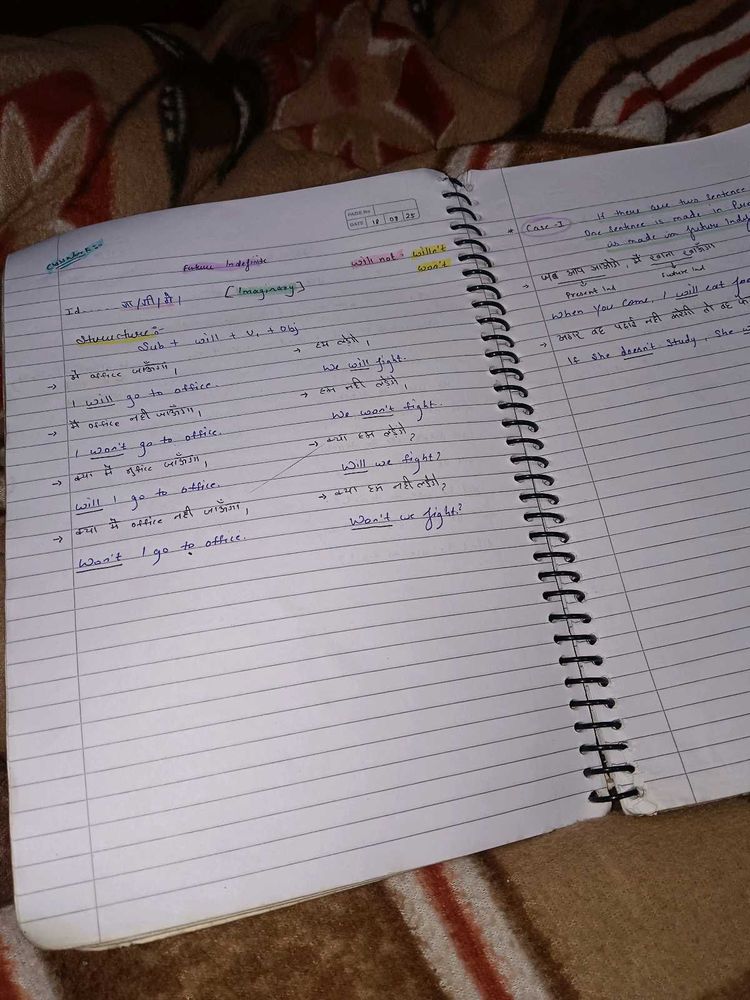 PAGE No
DATE 18 09 25
Future Indefinite
Will not = willn't
won't
[Imaginary]
Id गा/गी/गे।
Structure:-
Sub + will + V₁ + Obj
→ मैं office जाऊँगा।
I will go to office.
→ मैं office नहीं जाऊँगा।
I won't go to office.
→ क्या मैं office जाऊँगा।
Will I go to office.
→ क्या मैं office नहीं जाऊँगा।
Won't I go to office.
→ हम लड़ेंगे।
We will fight.
→ हम नहीं लड़ेंगे।
We won't fight.
→ क्या हम लड़ेंगे?
Will we fight?
→ क्या हम नहीं लड़ेंगे?
Won't we fight?
* Case-I If there are two sentence
One sentence is made in
is made in future
→ जब आप आओगे, मैं खाना खाऊँगा
Present Ind Future Ind
When you come, I will eat
→ अगर वह पढ़ाई नहीं करेगी तो वह
If she doesn't study, she